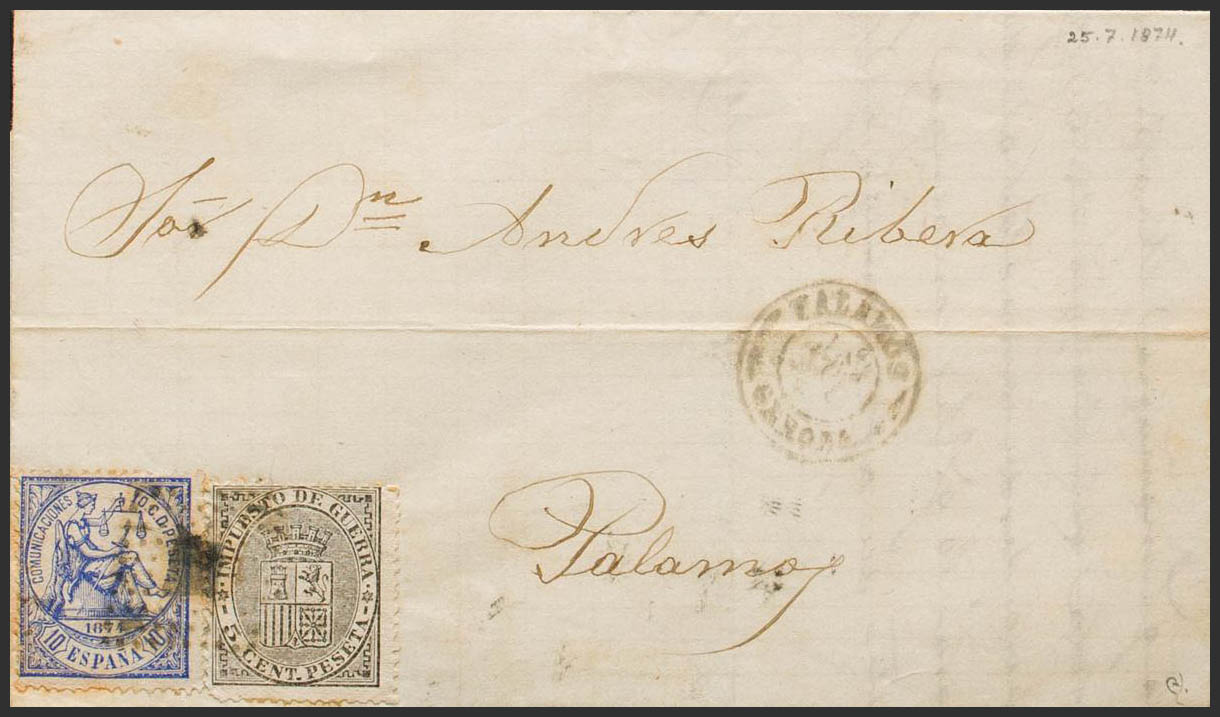 25.7.1874.
Sör Dn Andres Ribera
PALAMOS
GERONA
Palamos
COMUNICACIONES 10 C. D. PESETA
1874
10 ESPAÑA 10
IMPUESTO DE GUERRA
5 CENT. PESETA